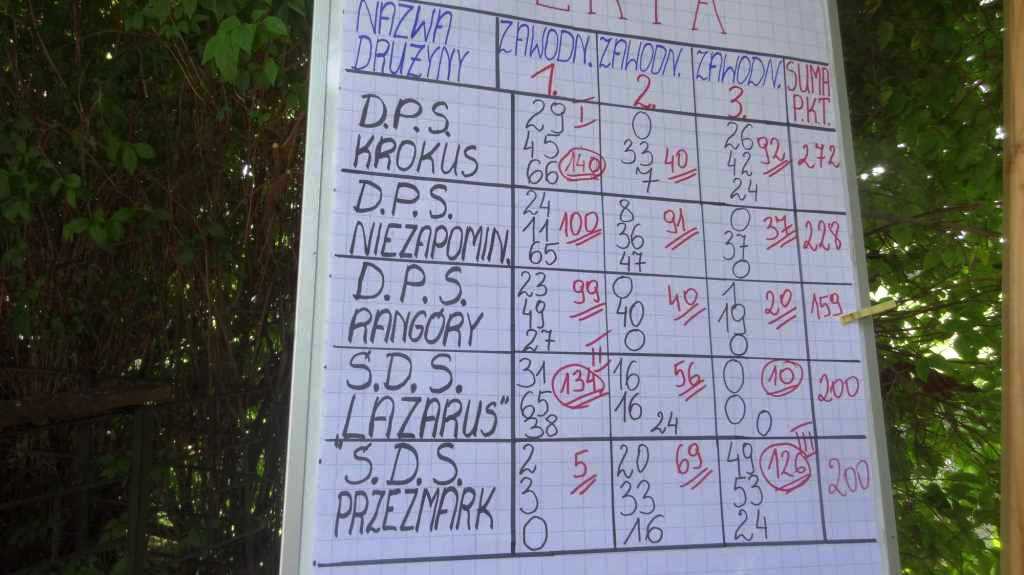 NAZWA DRUŻYNY ZAWODN. 1. ZAWODN. 2. ZAWODN. 3. SUMA P.KT.
D.P.S. 29 I 0 26
KROKUS 45 140 33 40 42 92 272
66 7 24
D.P.S. 24 8 0
NIEZAPOMIN. 11 100 36 91 37 37 228
65 47 0
D.P.S. 23 0 1
RANGÓRY 49 99 40 40 19 20 159
27 0 0
Ś.D.S. 31 II 16 0
„LAZARUS” 65 134 16 56 0 10 200
38 24 0
Ś.D.S. 2 20 49 III
PRZEZMARK 3 5 33 69 53 126 200
0 16 24